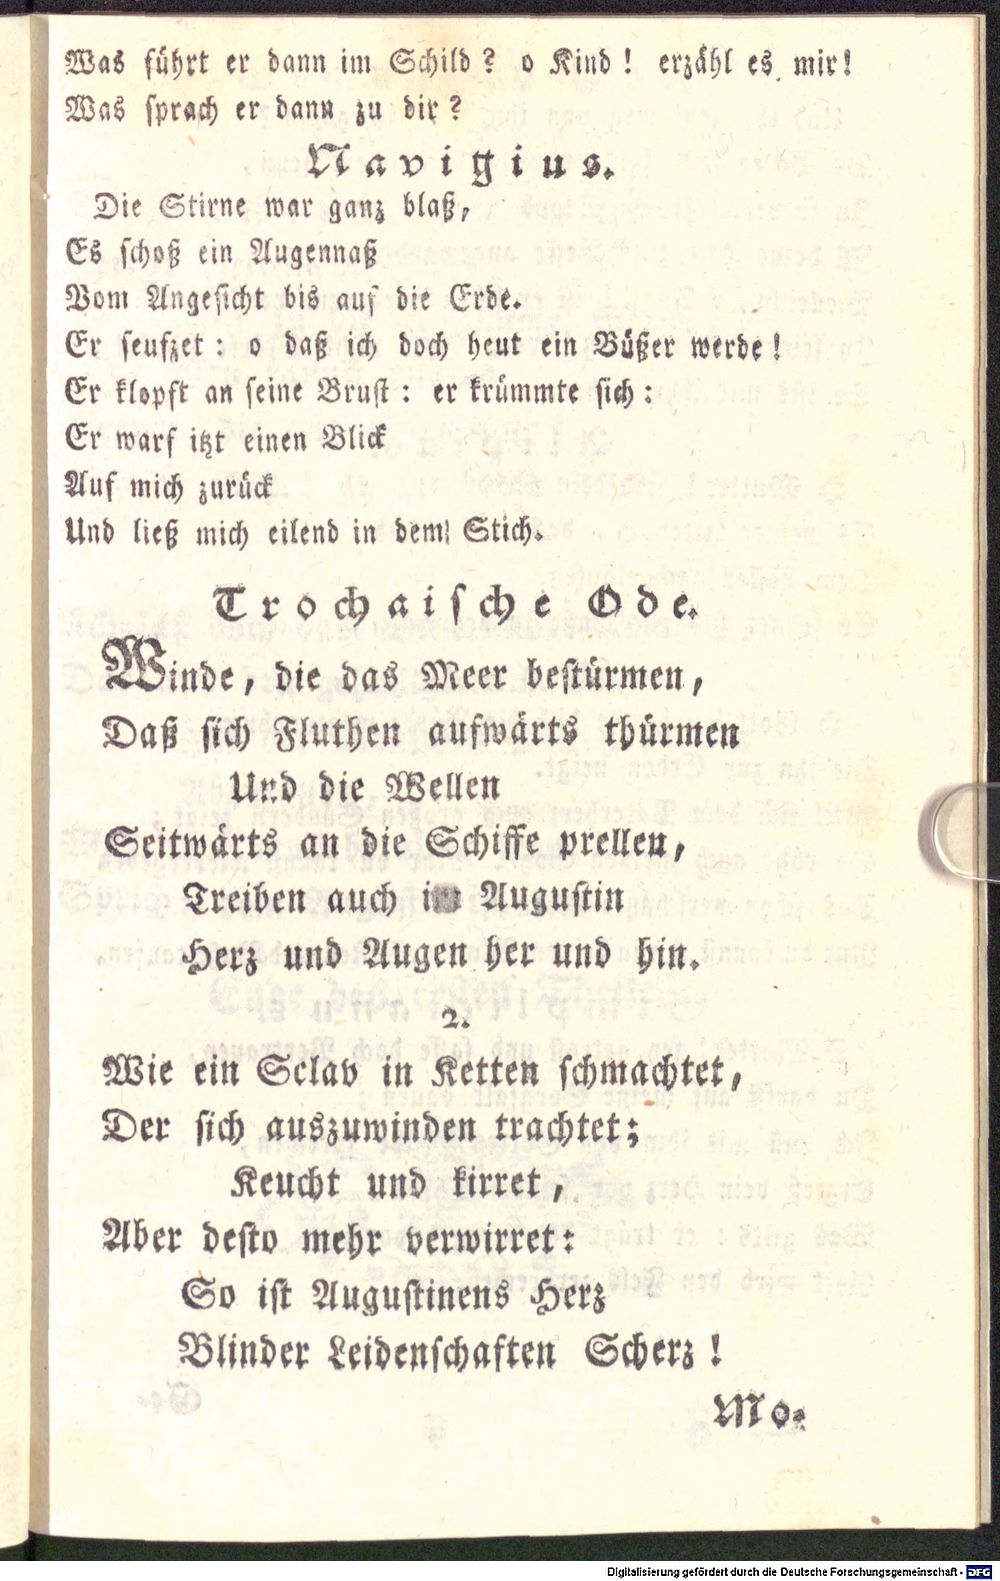 Was führt er dann im Schild? o Kind! erzähl es mir!
Was sprach er dann zu dir?
Navigius.
Die Stirne war ganz blaß,
Es schoß ein Augennaß
Vom Angesicht bis auf die Erde.
Er seufzet: o daß ich doch heut ein Büßer werde!
Er klopft an seine Brust: er krümmte sich:
Er warf itzt einen Blick
Auf mich zurück
Und ließ mich eilend in dem Stich.
Trochaische Ode.
Winde, die das Meer bestürmen,
Daß sich Fluthen aufwärts thürmen
Und die Wellen
Seitwärts an die Schiffe prellen,
Treiben auch im Augustin
Herz und Augen her und hin.
2.
Wie ein Sclav in Ketten schmachtet,
Der sich auszuwinden trachtet;
Keucht und kirret,
Aber desto mehr verwirret:
So ist Augustinens Herz
Blinder Leidenschaften Scherz!
Mo-
Digitalisierung gefördert durch die Deutsche Forschungsgemeinschaft - DFG